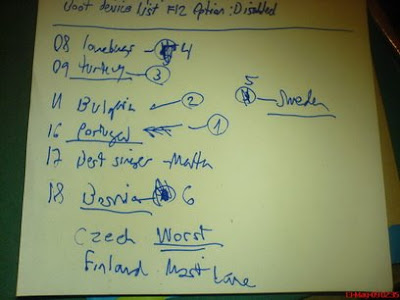 Boot device List F12 Option: Disabled
08 - 4
09 turkey - 3
11 Bulgaria 2
5 - Sweden
16 Portugal 1
17 Best singer - Malta
18 Bosnia 6
Czech Worst
Finland Most Lame